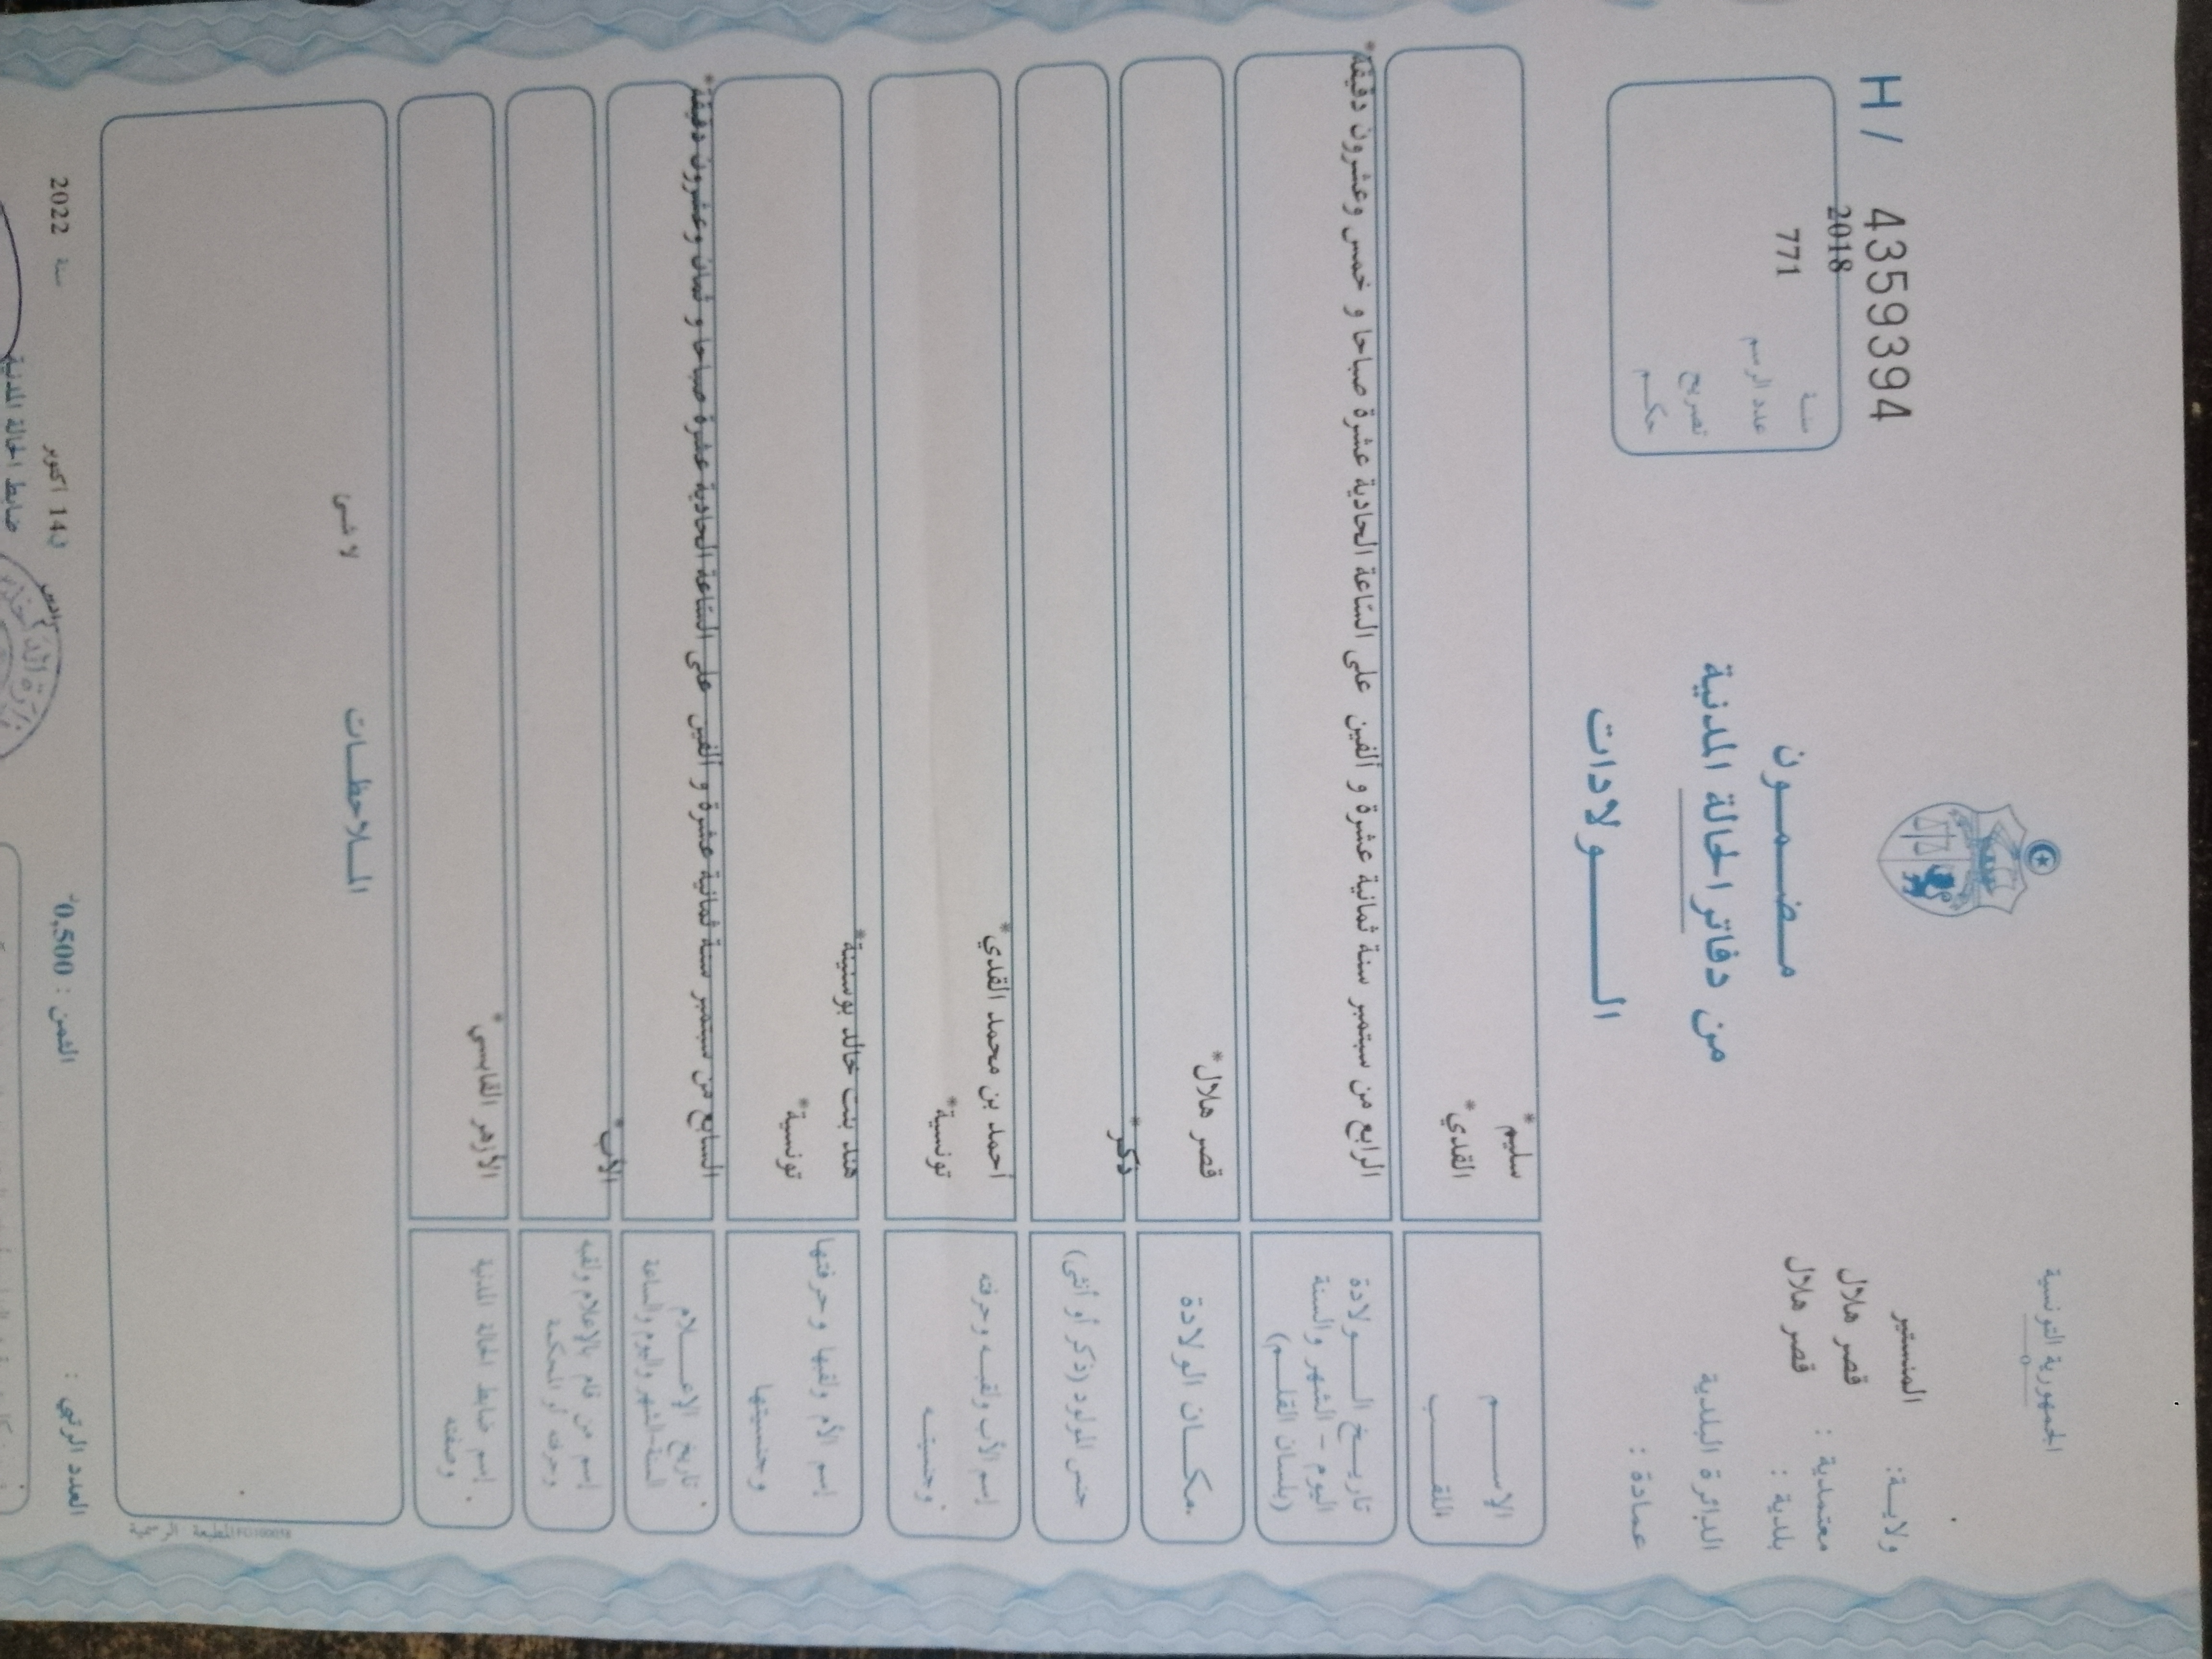 الجمهورية التونسية
ولايــة: المنستير
معتمدية : قصر هلال
بلدية : قصر هلال
الدائرة البلدية
عمادة :
H / 4359394
سنـة 2018
عدد الرسم 771
تصريح
حكـم
مـضـمـون
من دفاتر الحالة المدنية
الـــولادات
الإســـم سليم*
اللقـــب القدي*
تاريـخ الــولادة الرابع من سبتمبر سنة ثمانية عشرة و ألفين على الساعة الحادية عشرة صباحا و خمس وعشرون دقيقة*
اليوم - الشهر والسنة
(بلسان القلـم)
مكـان الولادة قصر هلال*
جنس المولود (ذكر أو أنثى) ذكر*
إسم الأب ولقبـه وحرفته أحمد بن محمد القدي*
وجنسيتـه تونسية*
إسم الأم ولقبها وحرفتها هند بنت خالد بوسنينة*
وجنسيتها تونسية*
تاريخ الإعـــلام السابع من سبتمبر سنة ثمانية عشرة و ألفين على الساعة الحادية عشرة صباحا و ثمان وعشرون دقيقة*
السنة-الشهر واليوم والساعة
إسم من قام بالإعلام ولقبه الأب*
وحرفته أو المحكمة
إسم ضابط الحالة المدنية الأزهر القابسي*
وصفته
المـلاحظـات
لا شى
المطبعة الرسمية
العدد الرتبي :
الثمن : 0,500
في 14 أكتوبر سنة 2022
ضابط الحالة المدنية